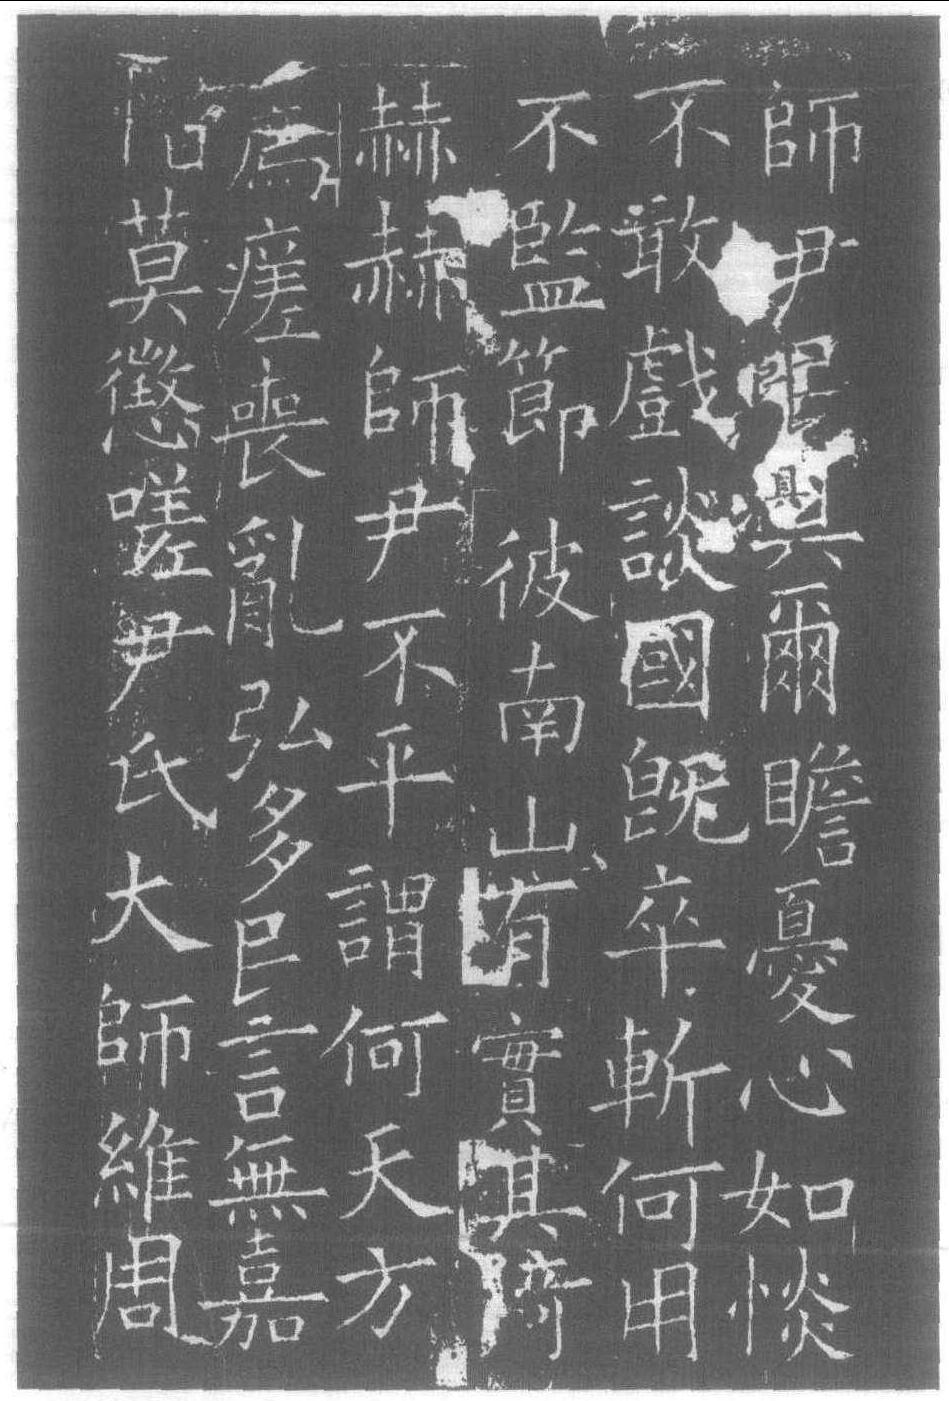 師尹民具爾瞻憂心如惔
不敢戲談國既卒斬何用
不監節彼南山有實其猗
赫赫師尹不平謂何天方
薦瘥喪亂弘多民言無嘉
憯莫懲嗟尹氏大師維周